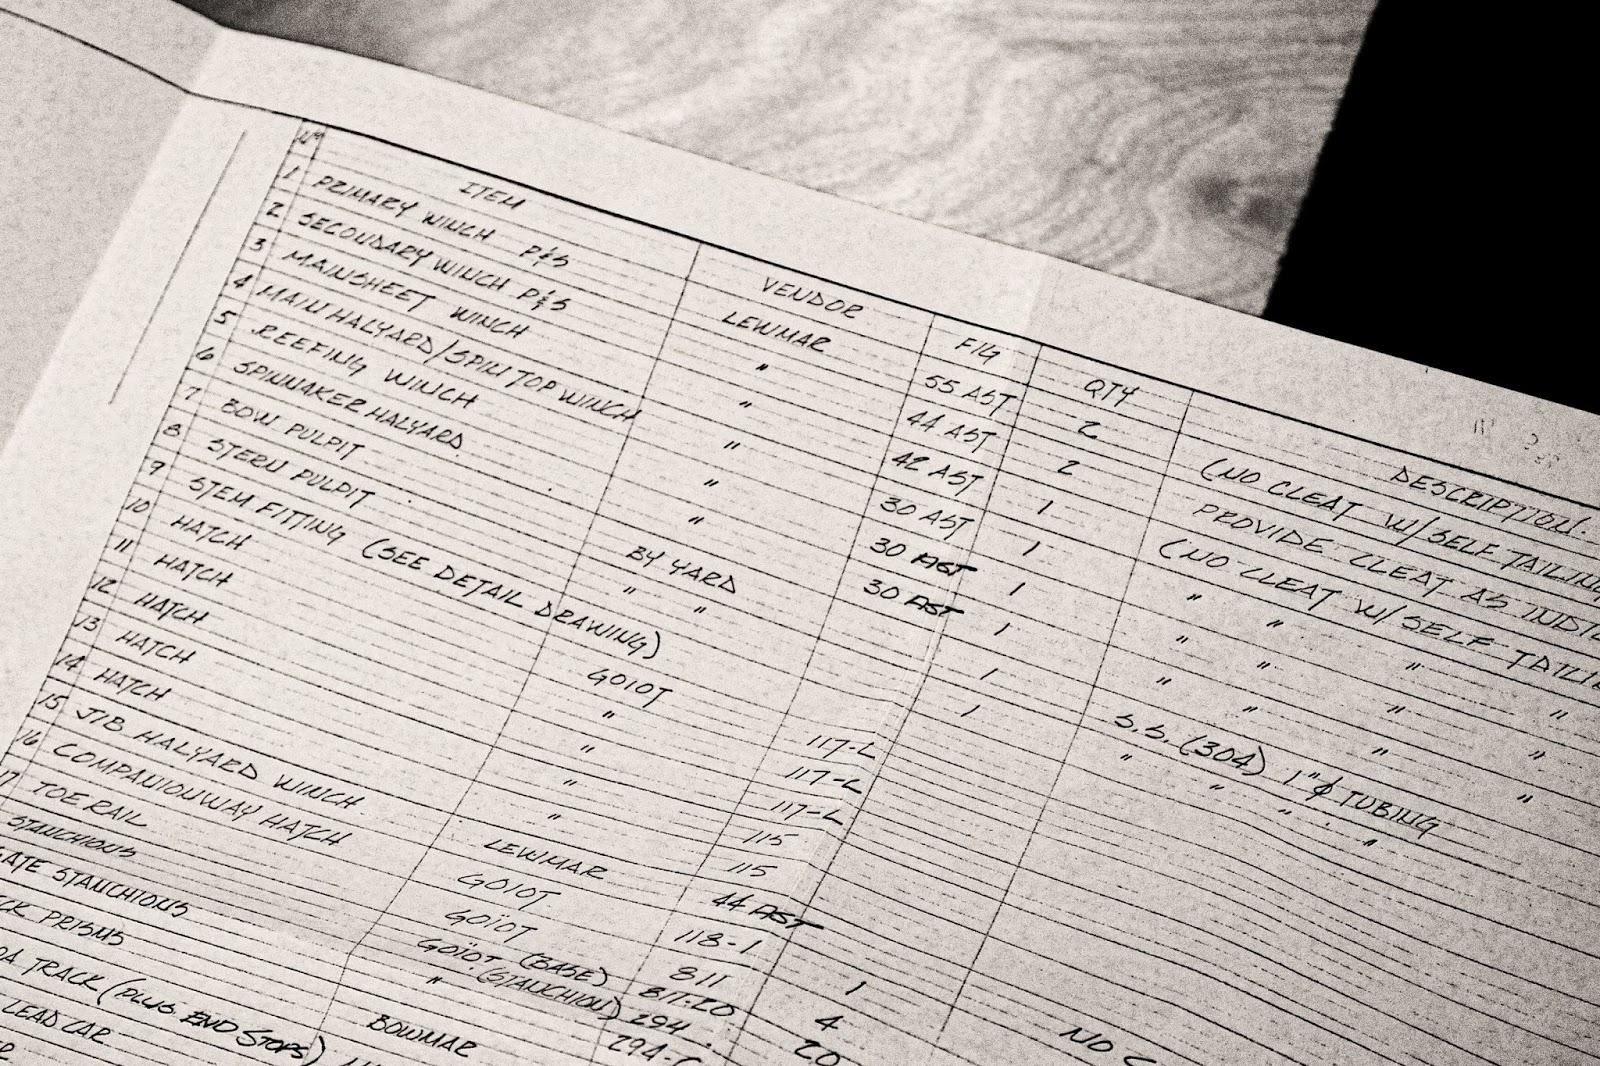 Nº ITEM VENDOR FIG QTY DESCRIPTION
1 PRIMARY WINCH P&S LEWMAR 55 AST 2 (NO CLEAT W/SELF TAILING
2 SECONDARY WINCH P&S " 44 AST 2 PROVIDE CLEAT AS
3 MAINSHEET WINCH " 42 AST 1 (NO CLEAT W/ SELF
4 MAIN HALYARD/SPIN TOP WINCH " 30 AST 1 " " " "
5 REEFING WINCH " 30 AST 1 " " " "
6 SPINNAKER HALYARD " 30 AST 1 " " " "
7 BOW PULPIT BY YARD 1 S.S. (304) 1"φ TUBING
8 STERN PULPIT " " 1 " " " "
9 STEM FITTING (SEE DETAIL DRAWING)
10 HATCH GOIOT 117-L
11 HATCH " 117-L
12 HATCH " 117-L
13 HATCH " 115
14 HATCH " 115
15 JIB HALYARD WINCH LEWMAR 44 AST 1 NO
16 COMPANIONWAY HATCH GOIOT 118-1
17 TOE RAIL GOÏOT 811
STANCHIONS GOÏOT (BASE) 811-20
" (STANCHION) 294
GATE STANCHIONS 294-
PRISMS BOWMAR
TRACK (PLUS END STOPS)
LEAD CAR
4
20